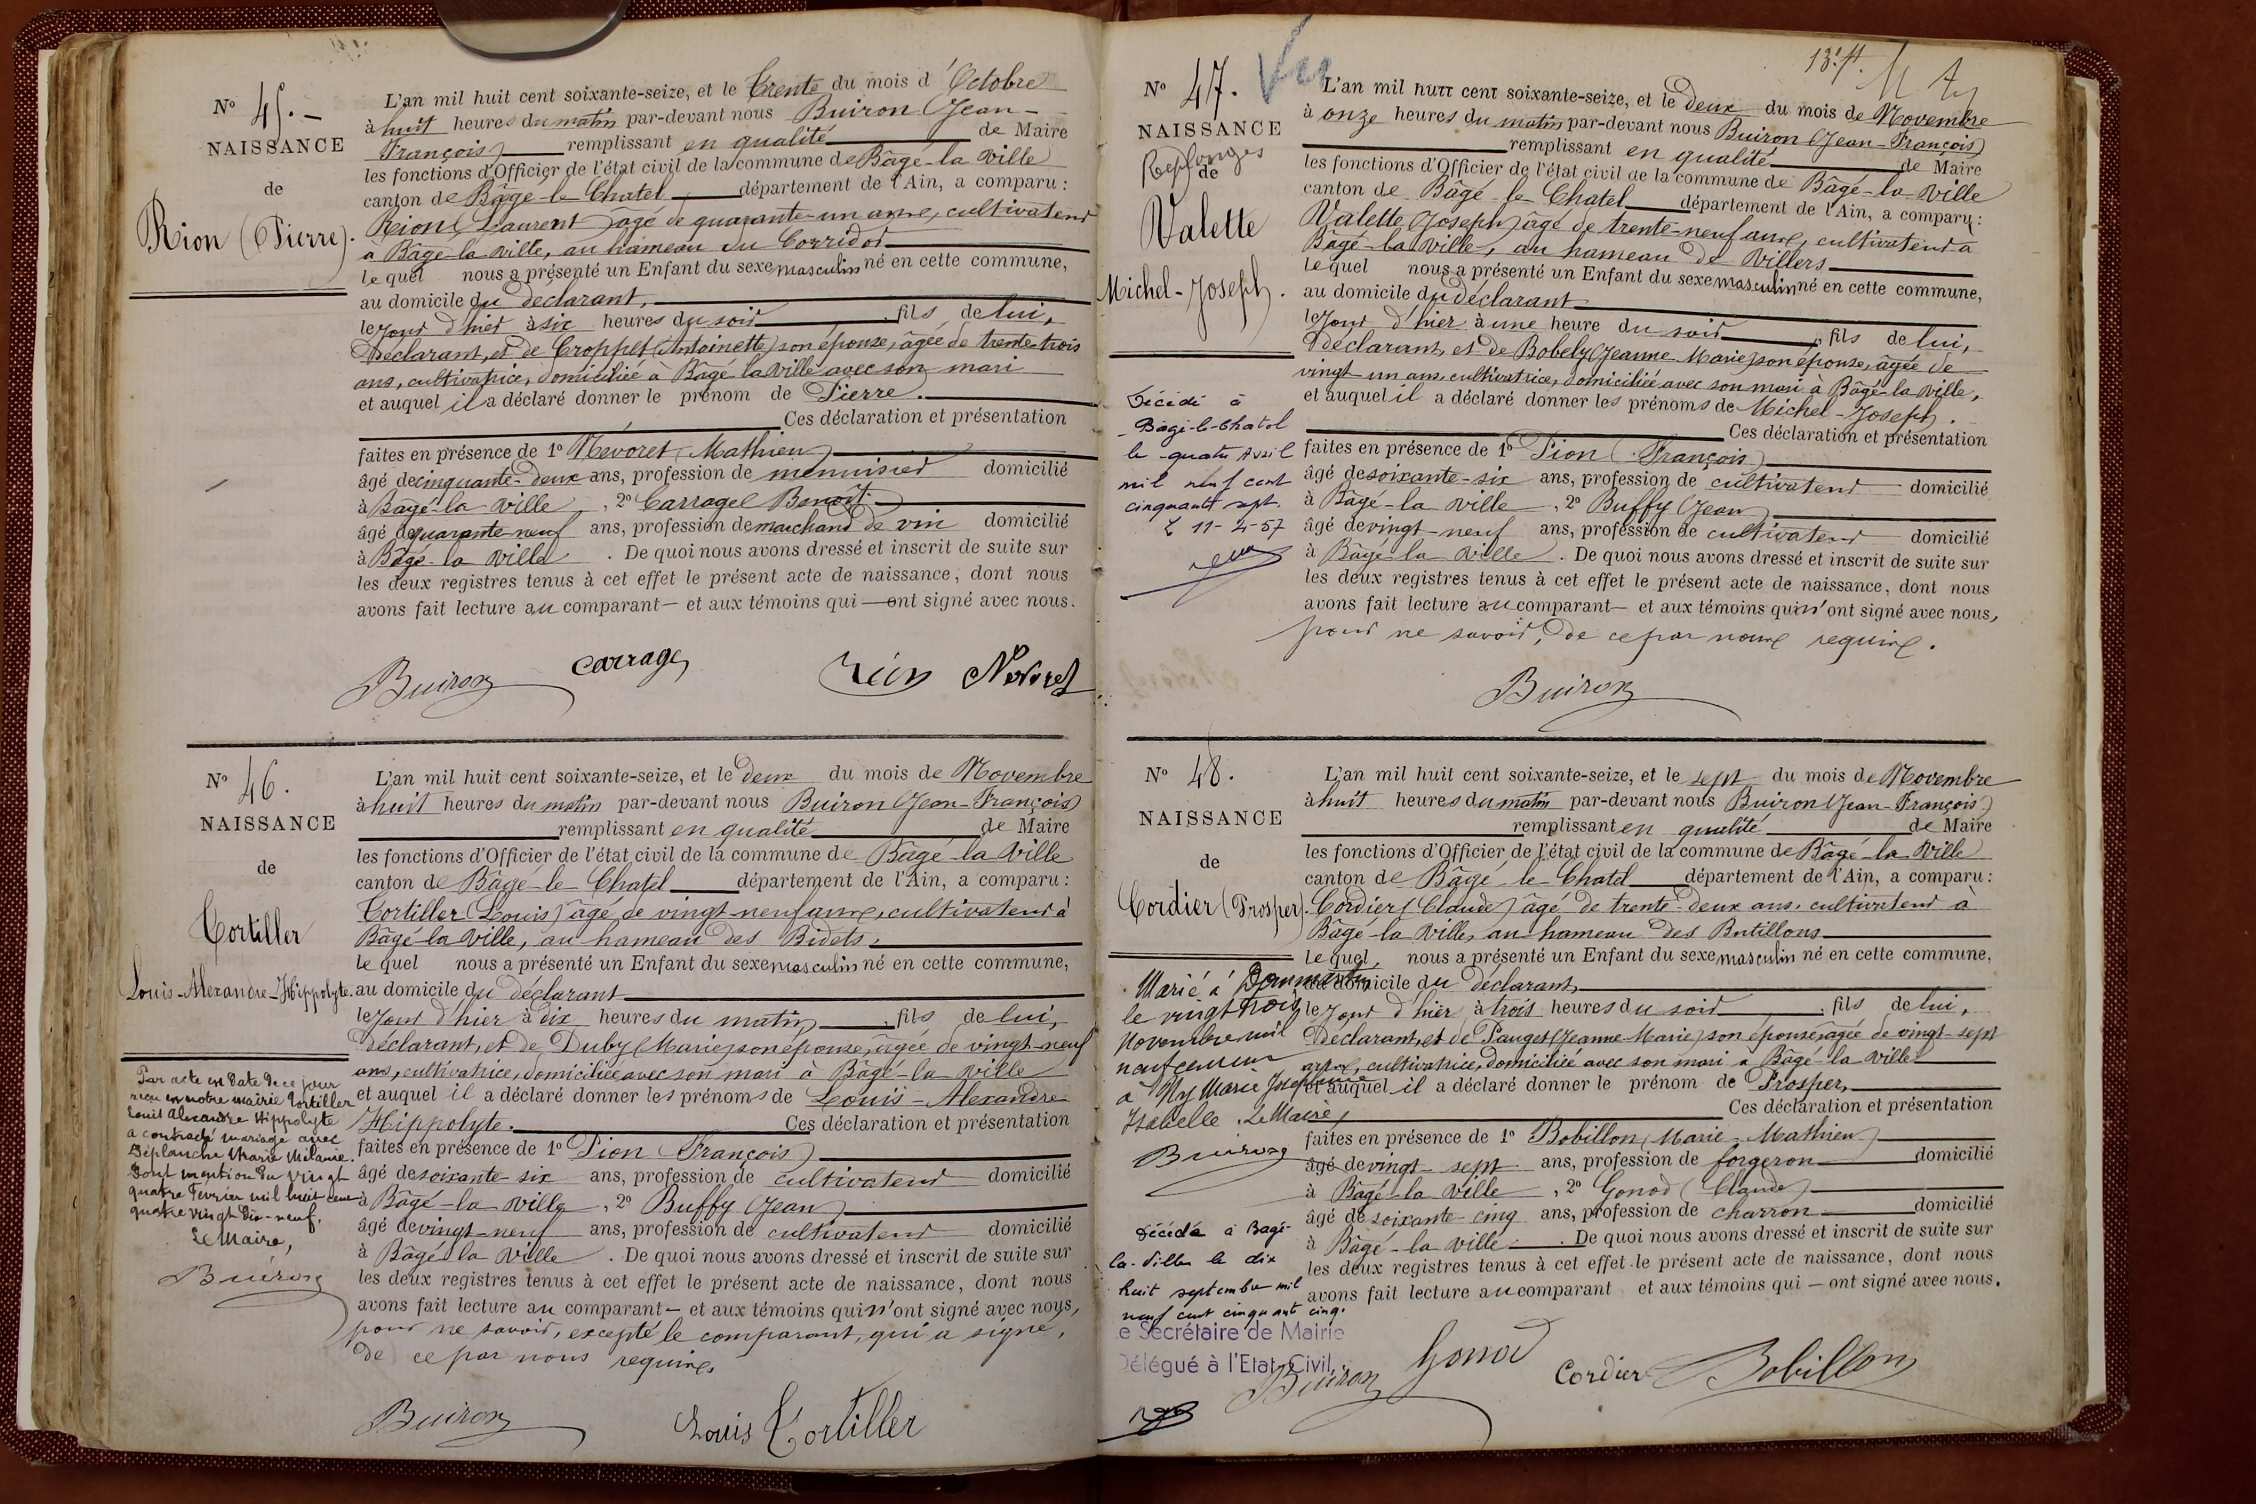 N° 45. -
NAISSANCE
de
Rion (Pierre).
L'an mil huit cent soixante-seize, et le trente du mois d'Octobre
à huit heures du matin par-devant nous Buiron (Jean-
François) remplissant en qualité de Maire
les fonctions d'Officier de l'état civil de la commune de Bâgé-la Ville
canton de Bâgé-le-Chatel département de l'Ain, a comparu :
Rion (Laurent) âgé de quarante-un ans, cultivateur
à Bâgé-la Ville, au hameau du Corridor
le quel nous a présenté un Enfant du sexe masculin né en cette commune,
au domicile du déclarant,
le jour d'hier à six heures du soir, fils de lui,
déclarant, et de Croppet (Antoinette) son épouse, âgée de trente-trois
ans, cultivatrice, domiciliée à Bâgé la Ville avec son mari
et auquel il a déclaré donner le prénom de Pierre.
Ces déclaration et présentation
faites en présence de 1° Névoret (Mathieu)
âgé de cinquante-deux ans, profession de menuisier domicilié
à Bagé-la Ville, 2° Carragel Benoît
âgé de quarante neuf ans, profession de marchand de vin domicilié
à Bâgé-la Ville. De quoi nous avons dressé et inscrit de suite sur
les deux registres tenus à cet effet le présent acte de naissance, dont nous
avons fait lecture au comparant — et aux témoins qui — ont signé avec nous.
Buiron Carrage Rion Nevoret
N° 46.
NAISSANCE
de
Tortiller
Louis-Alexandre-Hippolyte.
L'an mil huit cent soixante-seize, et le deux du mois de Novembre
à huit heures du matin par-devant nous Buiron (Jean-François)
remplissant en qualité de Maire
les fonctions d'Officier de l'état civil de la commune de Bâgé-la Ville
canton de Bâgé-le-Chatel département de l'Ain, a comparu :
Tortiller (Louis) âgé de vingt-neuf ans, cultivateur à
Bâgé-la Ville, au hameau des Bidets,
le quel nous a présenté un Enfant du sexe masculin né en cette commune,
au domicile du déclarant
le jour d'hier à dix heures du matin, fils de lui,
déclarant, et de Duby (Marie) son épouse, âgée de vingt-neuf
ans, cultivatrice, domiciliée avec son mari à Bâgé-la Ville
et auquel il a déclaré donner les prénoms de Louis-Alexandre
Hippolyte. Ces déclaration et présentation
faites en présence de 1° Pion (François)
âgé de soixante-six ans, profession de cultivateur domicilié
à Bâgé-la Ville, 2° Buffy (Jean)
âgé de vingt-neuf ans, profession de cultivateur domicilié
à Bâgé-la Ville. De quoi nous avons dressé et inscrit de suite sur
les deux registres tenus à cet effet le présent acte de naissance, dont nous
avons fait lecture au comparant — et aux témoins qui n'ont signé avec nous,
pour ne savoir, excepté le comparant, qui a signé,
de ce par nous requis.
Buiron Louis Tortiller
Par acte en date de ce jour
reçu en notre mairie Tortiller
Louis Alexandre Hippolyte
a contracté mariage avec
Déplanche Marie Mélanie.
Dont mention du vingt
quatre Février mil huit cent
quatre vingt dix-neuf.
Le Maire,
Buiron
13e f.
Vu
N° 47.
NAISSANCE
Replonges
de
Valette
Michel-Joseph.
L'an mil huit cent soixante-seize, et le deux du mois de Novembre
à onze heures du matin par-devant nous Buiron (Jean-François)
remplissant en qualité de Maire
les fonctions d'Officier de l'état civil de la commune de Bâgé-la-Ville
canton de Bâgé-le-Chatel département de l'Ain, a comparu :
Valette (Joseph) âgé de trente-neuf ans, cultivateur à
Bâgé-la Ville, au hameau de Villers
le quel nous a présenté un Enfant du sexe masculin né en cette commune,
au domicile du déclarant
le jour d'hier à une heure du soir, fils de lui,
déclarant, et de Bobely (Jeanne Marie) son épouse, âgée de
vingt un ans, cultivatrice, domiciliée avec son mari à Bâgé-la Ville,
et auquel il a déclaré donner les prénoms de Michel-Joseph.
Ces déclaration et présentation
faites en présence de 1° Pion (François)
âgé de soixante-six ans, profession de cultivateur domicilié
à Bâgé-la Ville, 2° Buffy (Jean)
âgé de vingt-neuf ans, profession de cultivateur domicilié
à Bâgé-la Ville. De quoi nous avons dressé et inscrit de suite sur
les deux registres tenus à cet effet le présent acte de naissance, dont nous
avons fait lecture au comparant — et aux témoins qui n'ont signé avec nous,
pour ne savoir, de ce par nous requis.
Buiron
Décédé à
Bâgé-le-Chatel
le quatre Avril
mil neuf cent
cinquante sept.
L 11-4-57
N° 48.
NAISSANCE
de
Cordier (Prosper).
L'an mil huit cent soixante-seize, et le sept du mois de Novembre
à huit heures du matin par-devant nous Buiron (Jean-François)
remplissant en qualité de Maire
les fonctions d'Officier de l'état civil de la commune de Bâgé-la Ville
canton de Bâgé-le-Chatel département de l'Ain, a comparu :
Cordier (Claude) âgé de trente-deux ans, cultivateur à
Bâgé-la Ville, au hameau des Butillons
le quel, nous a présenté un Enfant du sexe masculin né en cette commune,
au domicile du déclarant,
le jour d'hier à trois heures du soir, fils de lui,
déclarant, et de Pauget (Jeanne-Marie) son épouse, âgée de vingt-sept
ans, cultivatrice, domiciliée avec son mari à Bâgé-la Ville
et auquel il a déclaré donner le prénom de Prosper,
Ces déclaration et présentation
faites en présence de 1° Bobillon (Marie-Mathieu)
âgé de vingt-sept ans, profession de forgeron domicilié
à Bâgé-la Ville, 2° Gonod (Claude)
âgé de soixante-cinq ans, profession de charron domicilié
à Bâgé-la Ville. De quoi nous avons dressé et inscrit de suite sur
les deux registres tenus à cet effet le présent acte de naissance, dont nous
avons fait lecture au comparant et aux témoins qui — ont signé avec nous.
Buiron Gonod Cordier Bobillon
Marié à Dommartin
le vingt trois
Novembre mil
neuf cent un
à Ny Marie Joséphine
Isabelle. Le Maire,
Buiron
Décédé à Bagé-
la-Ville le dix
huit septembre mil
neuf cent cinquante cinq.
Le Secrétaire de Mairie
Délégué à l'Etat-Civil,